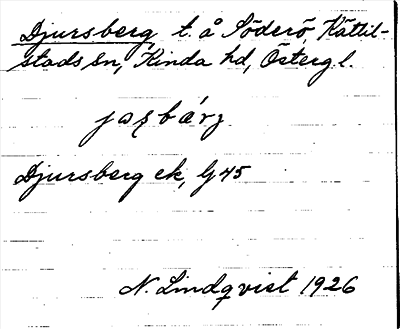 Djursberg, t. å Söderö, Kättil-
stads sn, Kinda hd, Östergl.
Djursberg ek, G 45
N. Lindqvist 1926